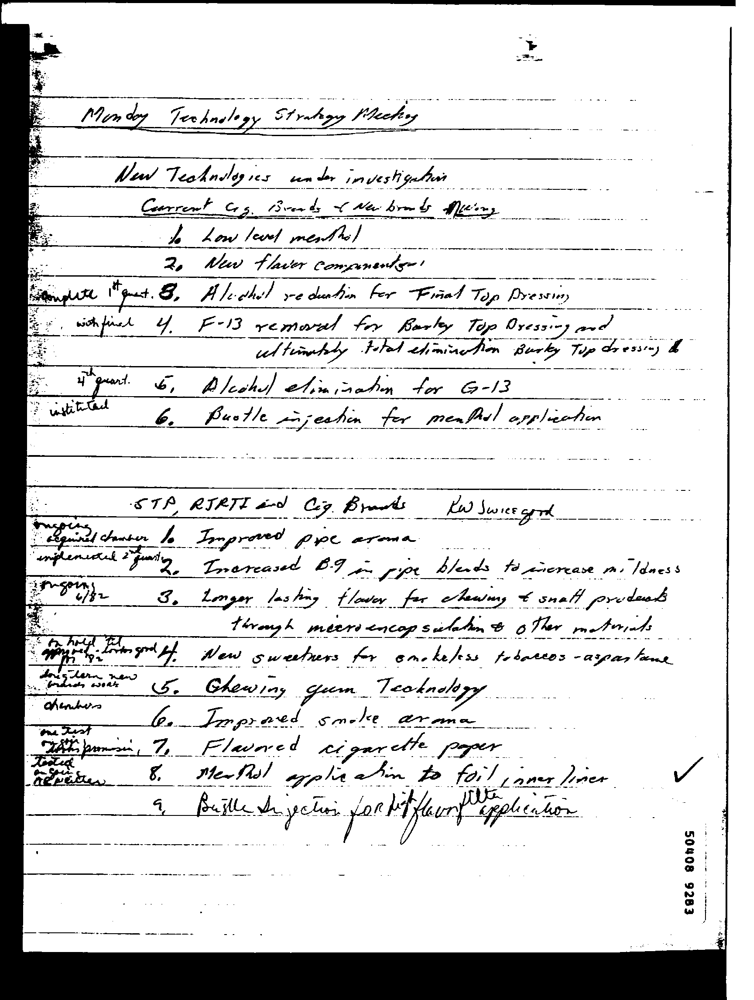 Monday Technology Strategy Meeting
New Technologies under investigation
Current Cig. Brands & New brands
1. Low level menthol
2. New flavor components
complete 1st quart. 3. Alcohol reduction for Final Top Dressing
with final 4. F-13 removal for Burley Top Dressing and
ultimately total elimination Burley Top dressing
4th quart. 5. Alcohol elimination for G-13
instituted 6. Bustle injection for menthol application
STP, RJRTI and Cig. Brands KW Swicegood
ongoing
acquired chamber 1. Improved pipe aroma
implemented 2nd quart. 2. Increased B-9 in pipe blends to increase mildness
ongoing
6/82 3. Longer lasting flavor for chewing & snuff products
through microencapsulation & other materials
on hold til
4. New sweetners for smokeless tobaccos - aspartame
long term new
5. Chewing gum Technology
chambers 6. Improved smoke aroma
one test
7. Flavored cigarette paper
Tested
8. Menthol application to foil, inner liner ✓
9. Bustle Injection for flavor filter application
50408 9283